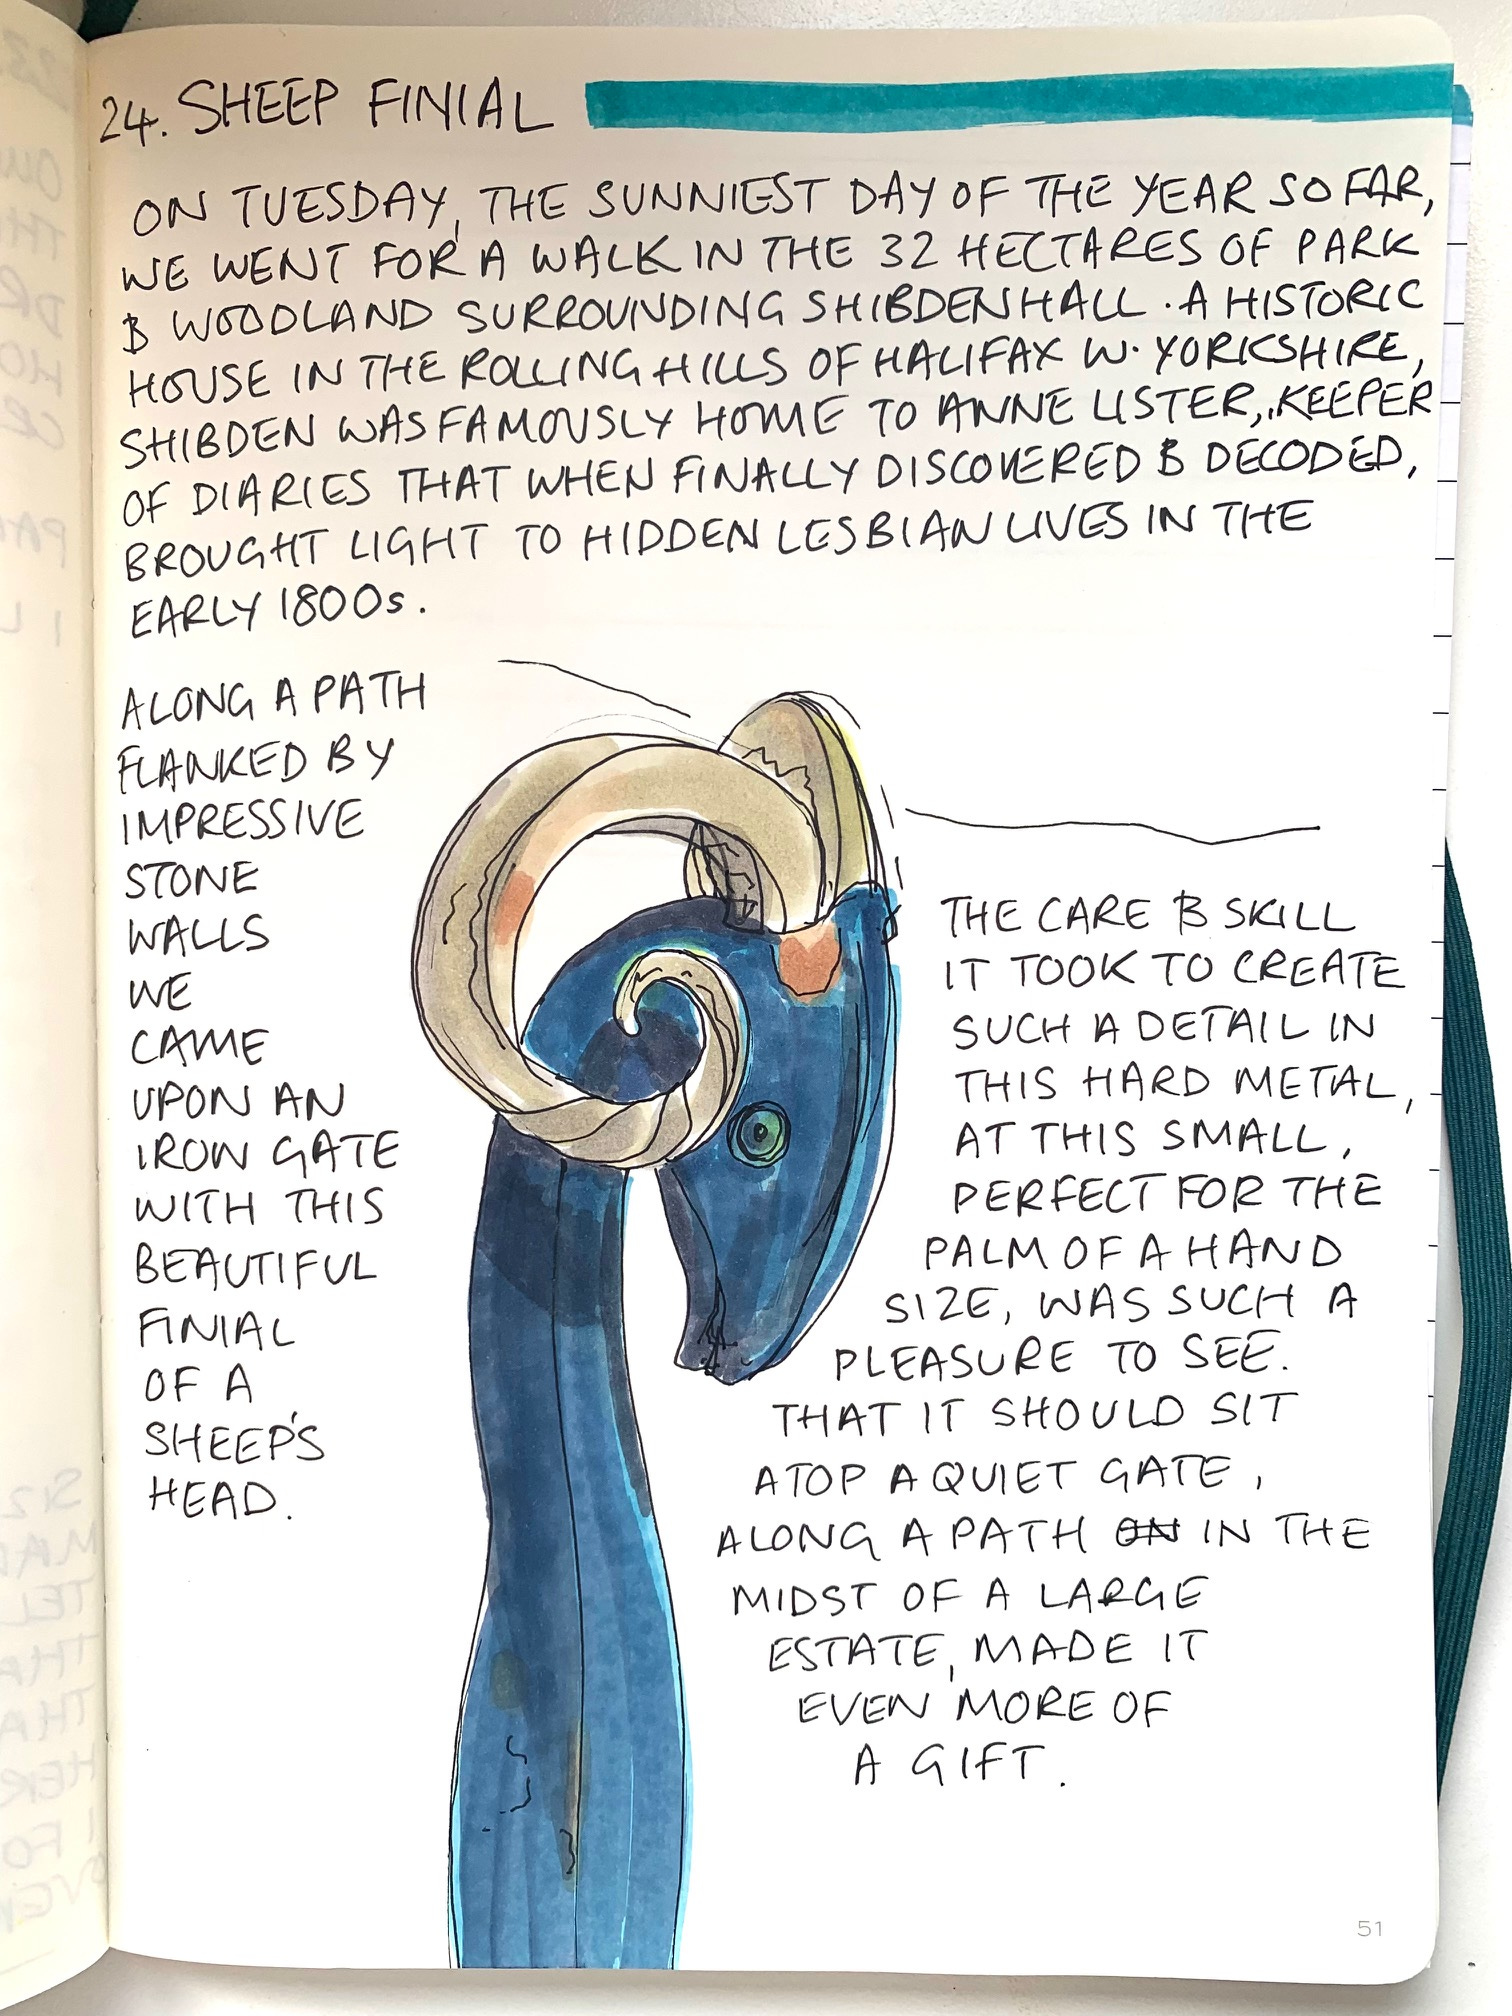 24. SHEEP FINIAL
ON TUESDAY, THE SUNNIEST DAY OF THE YEAR SO FAR,
WE WENT FOR A WALK IN THE 32 HECTARES OF PARK
& WOODLAND SURROUNDING SHIBDEN HALL. A HISTORIC
HOUSE IN THE ROLLING HILLS OF HALIFAX W. YORKSHIRE,
SHIBDEN WAS FAMOUSLY HOME TO ANNE LISTER, KEEPER
OF DIARIES THAT WHEN FINALLY DISCOVERED & DECODED,
BROUGHT LIGHT TO HIDDEN LESBIAN LIVES IN THE
EARLY 1800s.
ALONG A PATH
FLANKED BY
IMPRESSIVE
STONE
WALLS
WE
CAME
UPON AN
IRON GATE
WITH THIS
BEAUTIFUL
FINIAL
OF A
SHEEP'S
HEAD.
THE CARE & SKILL
IT TOOK TO CREATE
SUCH A DETAIL IN
THIS HARD METAL,
AT THIS SMALL,
PERFECT FOR THE
PALM OF A HAND
SIZE, WAS SUCH A
PLEASURE TO SEE.
THAT IT SHOULD SIT
ATOP A QUIET GATE,
ALONG A PATH ON IN THE
MIDST OF A LARGE
ESTATE, MADE IT
EVEN MORE OF
A GIFT.
51